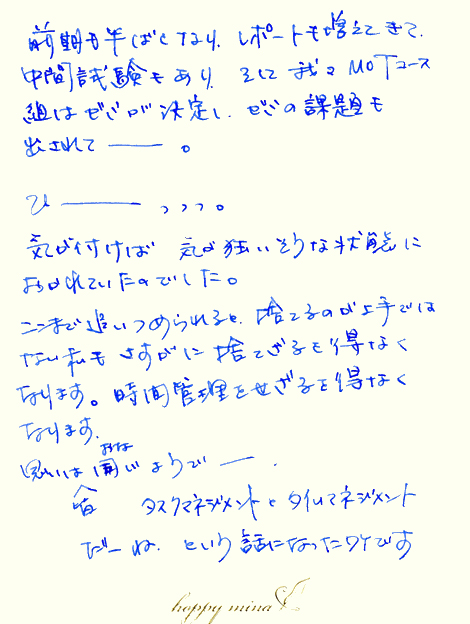 前期も半ばとなり、レポートも増えてきて、
中間試験もあり、そして我々MOTコース
組はゼミが決定し、ゼミの課題も
出されて――。
ひ――――っっっ。
気が付けば 気が狂いそうな状態に
おかれていたのでした。
ここまで追いつめられると、捨てるのが上手では
ない私もさすがに捨てざるを得なく
なります。時間管理をせざるを得なく
なります。
思いは同じようで―。
おな
皆 タスクマネジメントとタイムマネジメント
だーね、という話になったワケです
happy mina